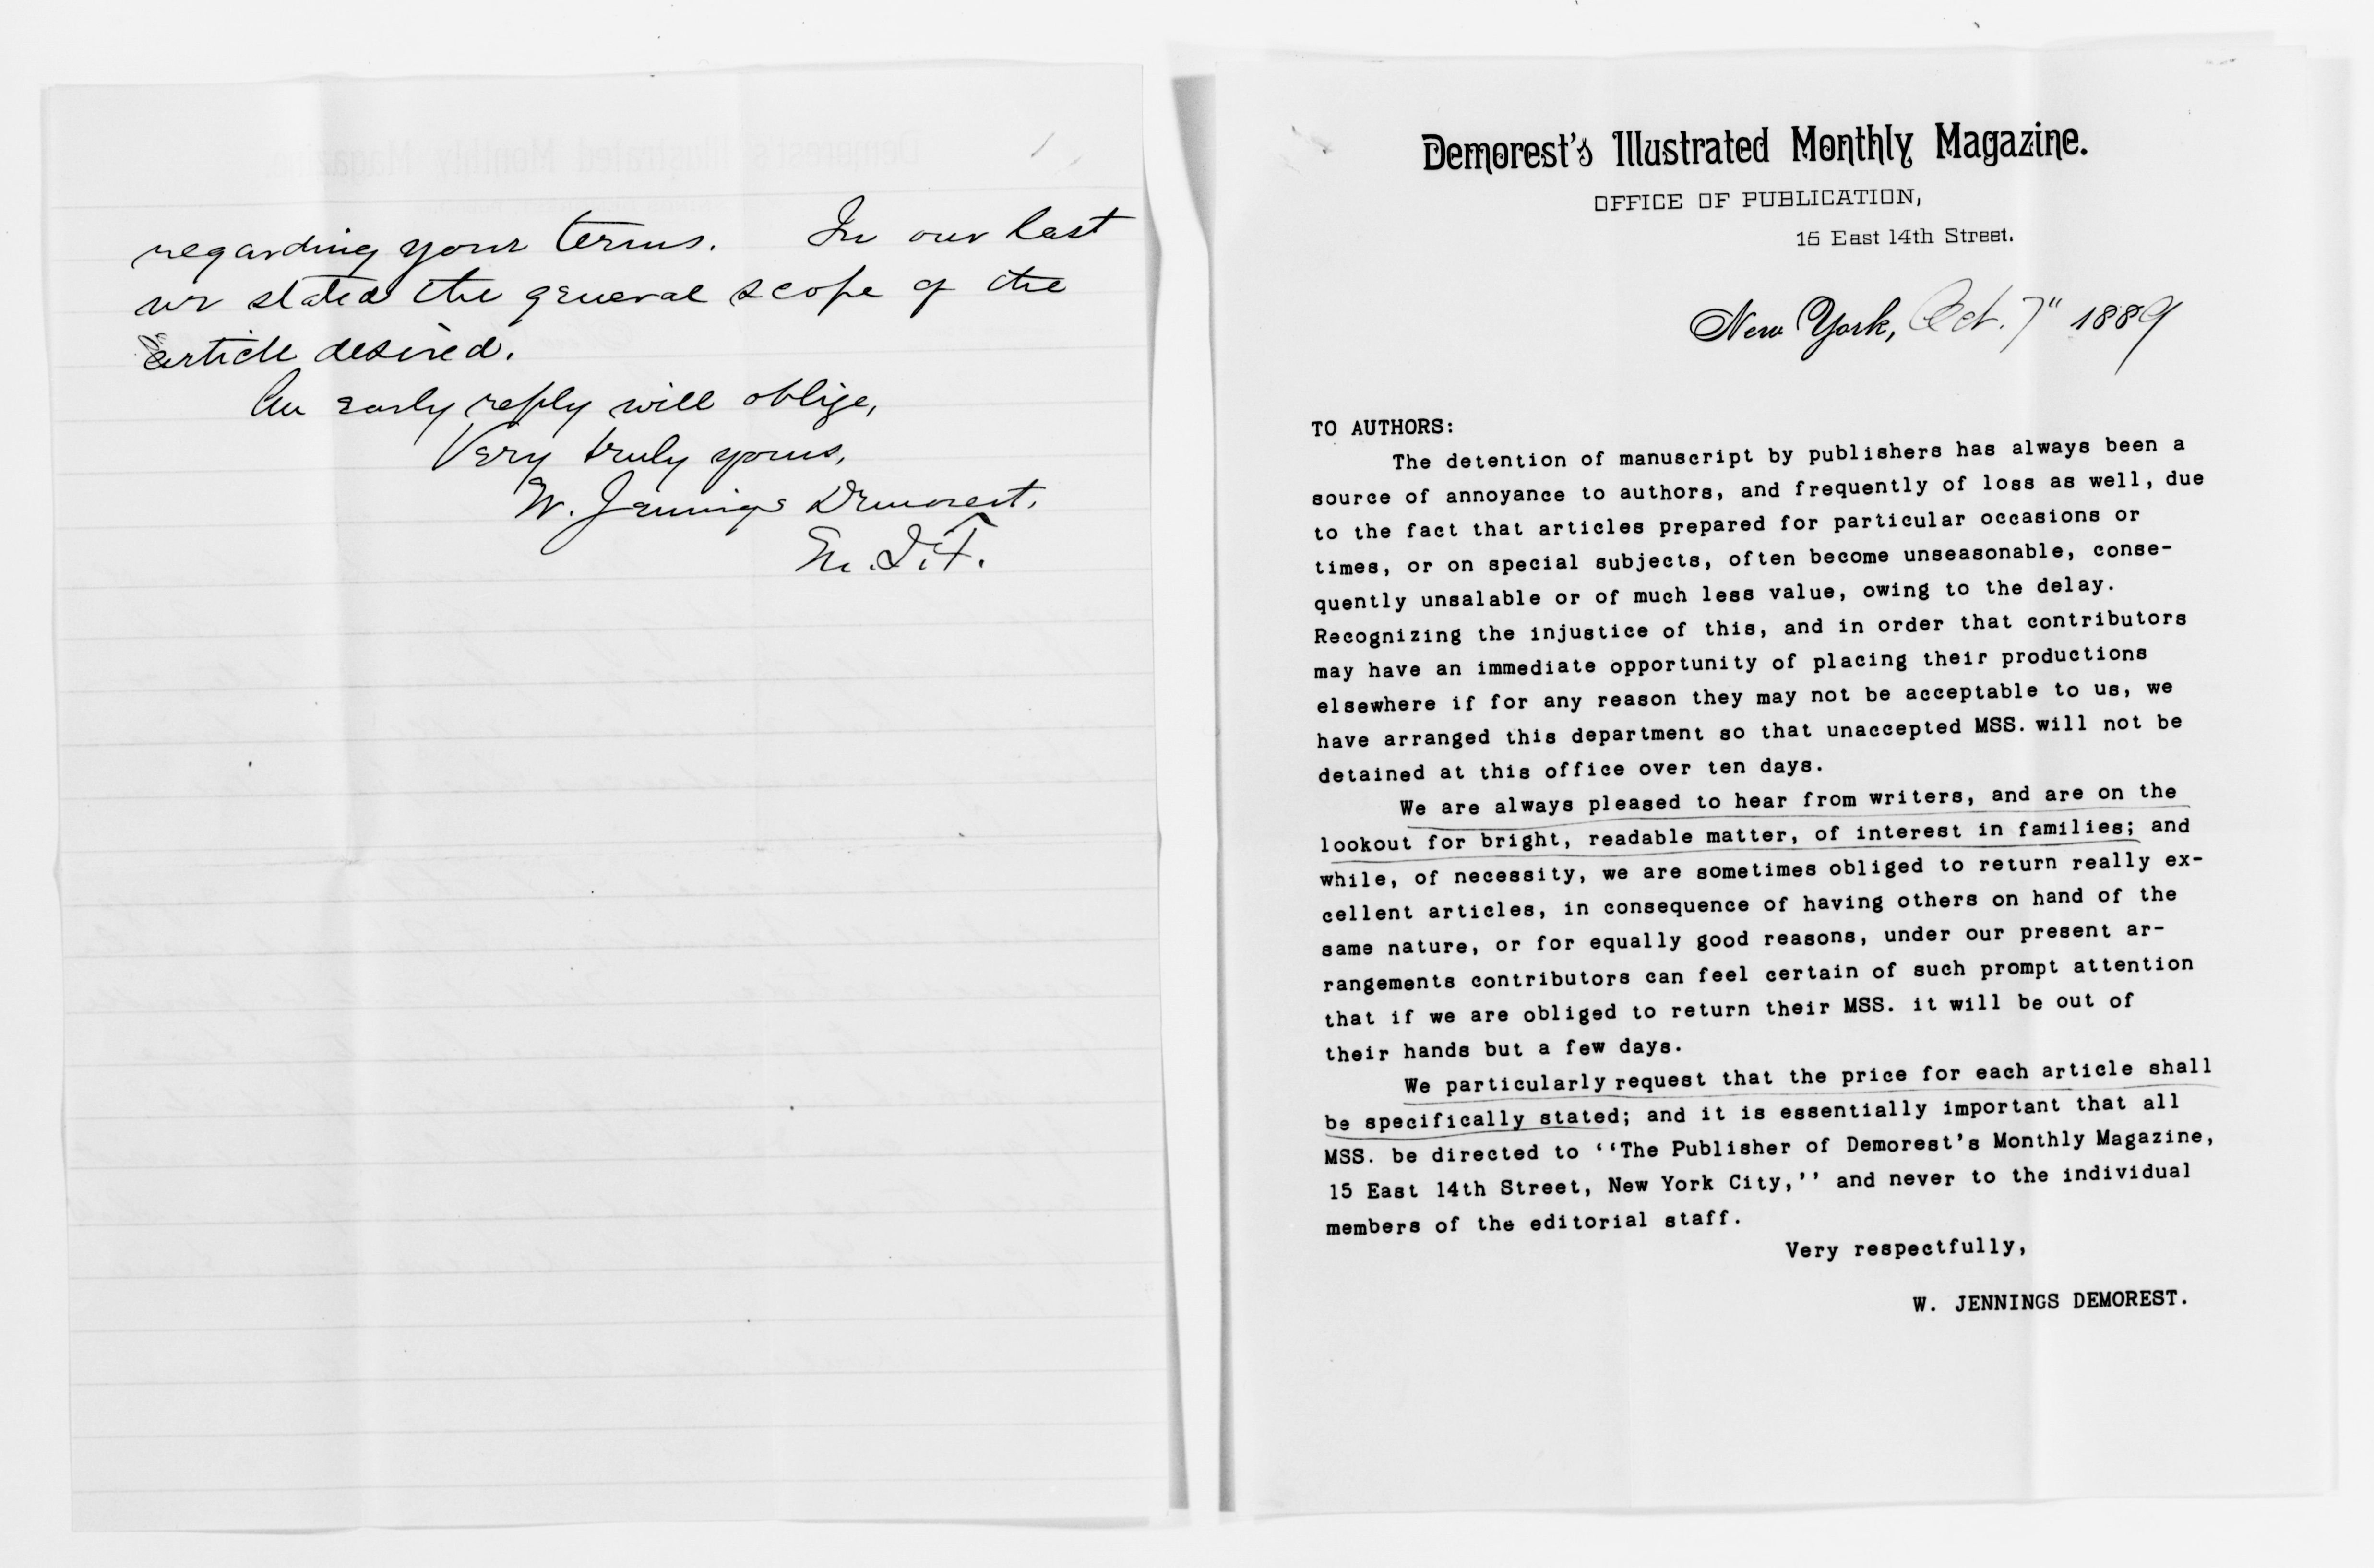 regarding your terms. In our last
we stated the general scope of the
article desired.
An early reply will oblige,
Very truly yours,
W. Jennings Demorest.
Demorest's Illustrated Monthly Magazine.
OFFICE OF PUBLICATION,
15 East 14th Street.
New York, Oct. 7" 1889
TO AUTHORS:
The detention of manuscript by publishers has always been a
source of annoyance to authors, and frequently of loss as well, due
to the fact that articles prepared for particular occasions or
times, or on special subjects, often become unseasonable, conse-
quently unsalable or of much less value, owing to the delay.
Recognizing the injustice of this, and in order that contributors
may have an immediate opportunity of placing their productions
elsewhere if for any reason they may not be acceptable to us, we
have arranged this department so that unaccepted MSS. will not be
detained at this office over ten days.
We are always pleased to hear from writers, and are on the
lookout for bright, readable matter, of interest in families; and
while, of necessity, we are sometimes obliged to return really ex-
cellent articles, in consequence of having others on hand of the
same nature, or for equally good reasons, under our present ar-
rangements contributors can feel certain of such prompt attention
that if we are obliged to return their MSS. it will be out of
their hands but a few days.
We particularly request that the price for each article shall
be specifically stated; and it is essentially important that all
MSS. be directed to ‘‘The Publisher of Demorest's Monthly Magazine,
15 East 14th Street, New York City,’’ and never to the individual
members of the editorial staff.
Very respectfully,
W. JENNINGS DEMOREST.